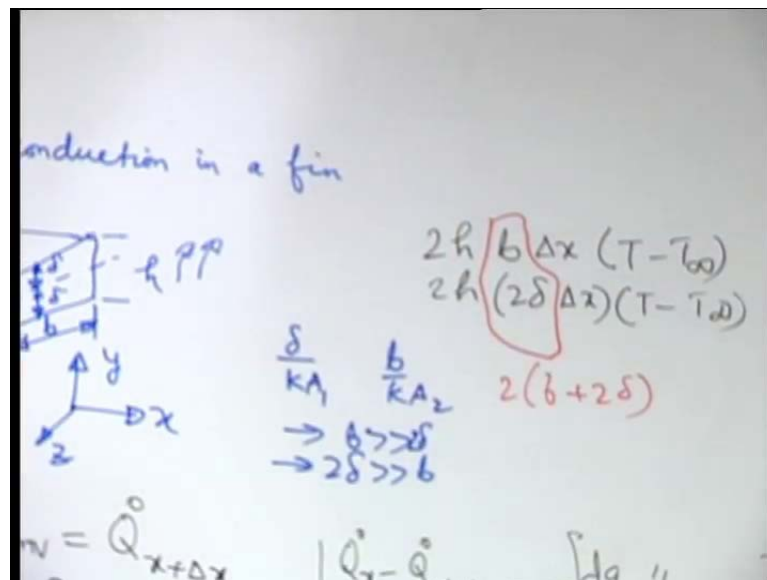 onduction in a fin
h
δ
δ
b
y
x
z
2h b Δx (T - T∞)
2h (2δ Δx)(T - T∞)
2(b + 2δ)
δ/kA₁ b/kA₂
→ b >> 2δ
→ 2δ >> b
= Q̇x+Δx | Q̇x - Q̇